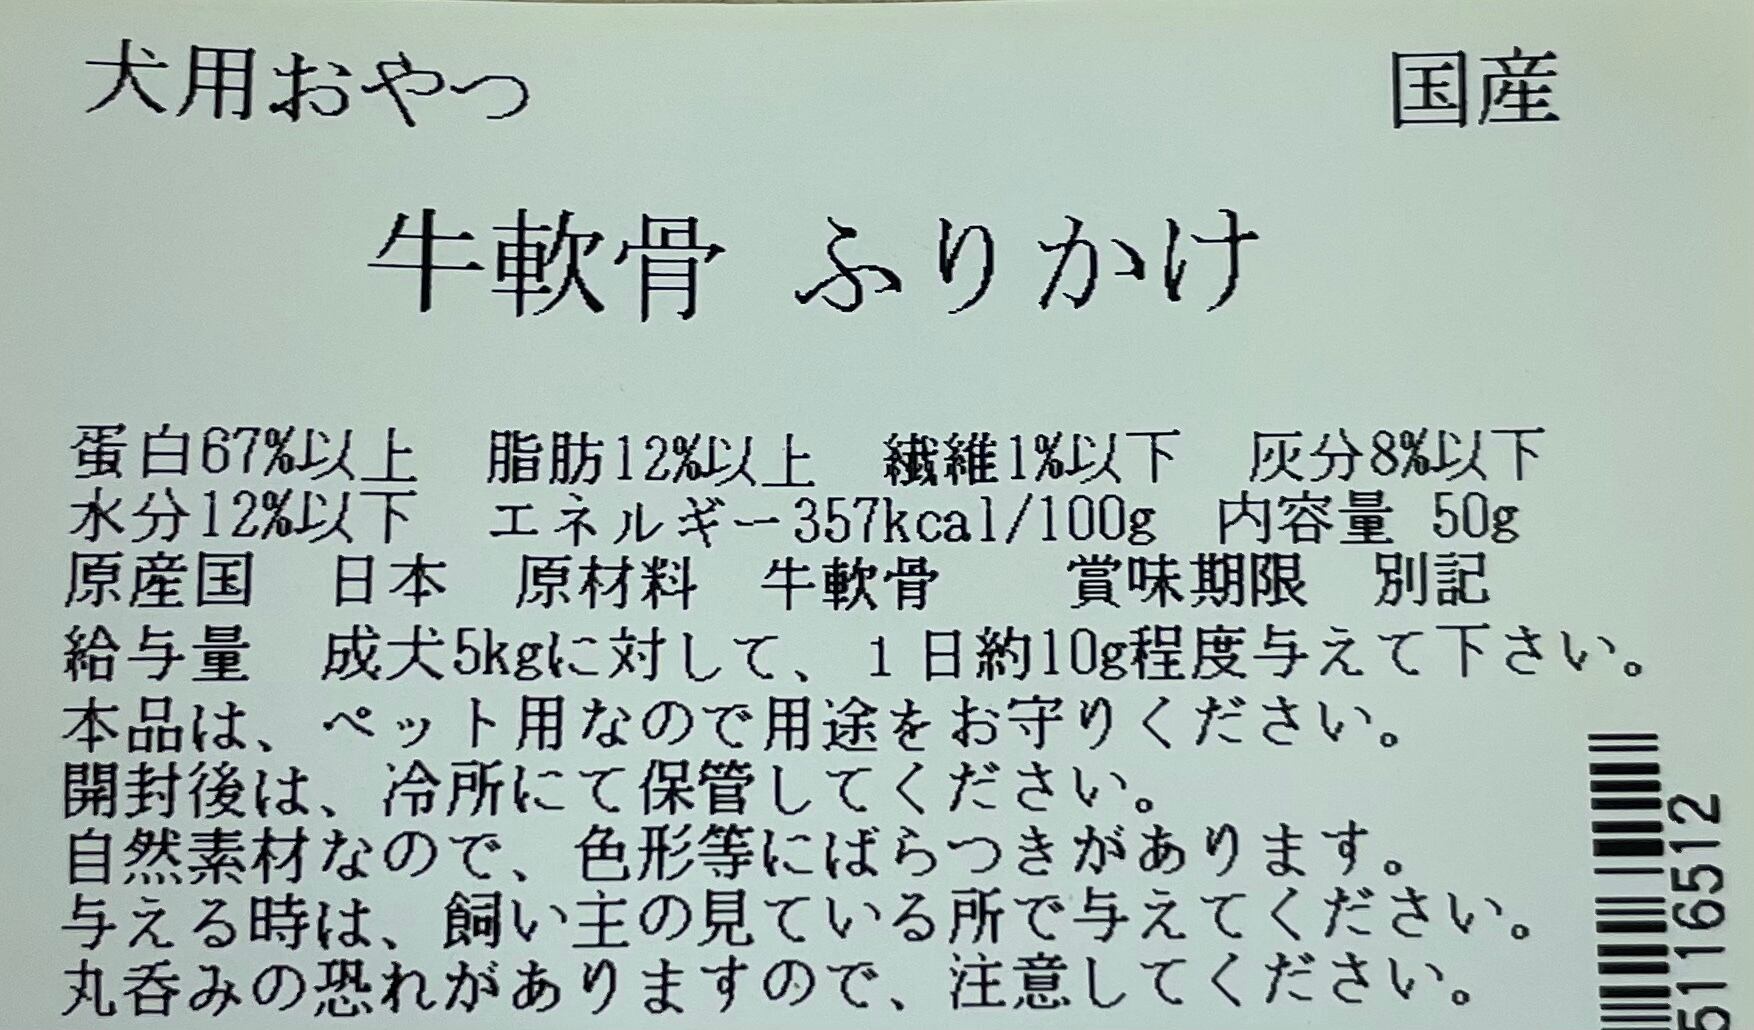 犬用おやつ　国産
牛軟骨 ふりかけ
蛋白67%以上　脂肪12%以上　繊維1%以下　灰分8%以下
水分12%以下　エネルギー357kcal/100g　内容量 50g
原産国　日本　原材料　牛軟骨　賞味期限　別記
給与量　成犬5kgに対して、１日約10g程度与えて下さい。
本品は、ペット用なので用途をお守りください。
開封後は、冷所にて保管してください。
自然素材なので、色形等にばらつきがあります。
与える時は、飼い主の見ている所で与えてください。
丸呑みの恐れがありますので、注意してください。
5116512